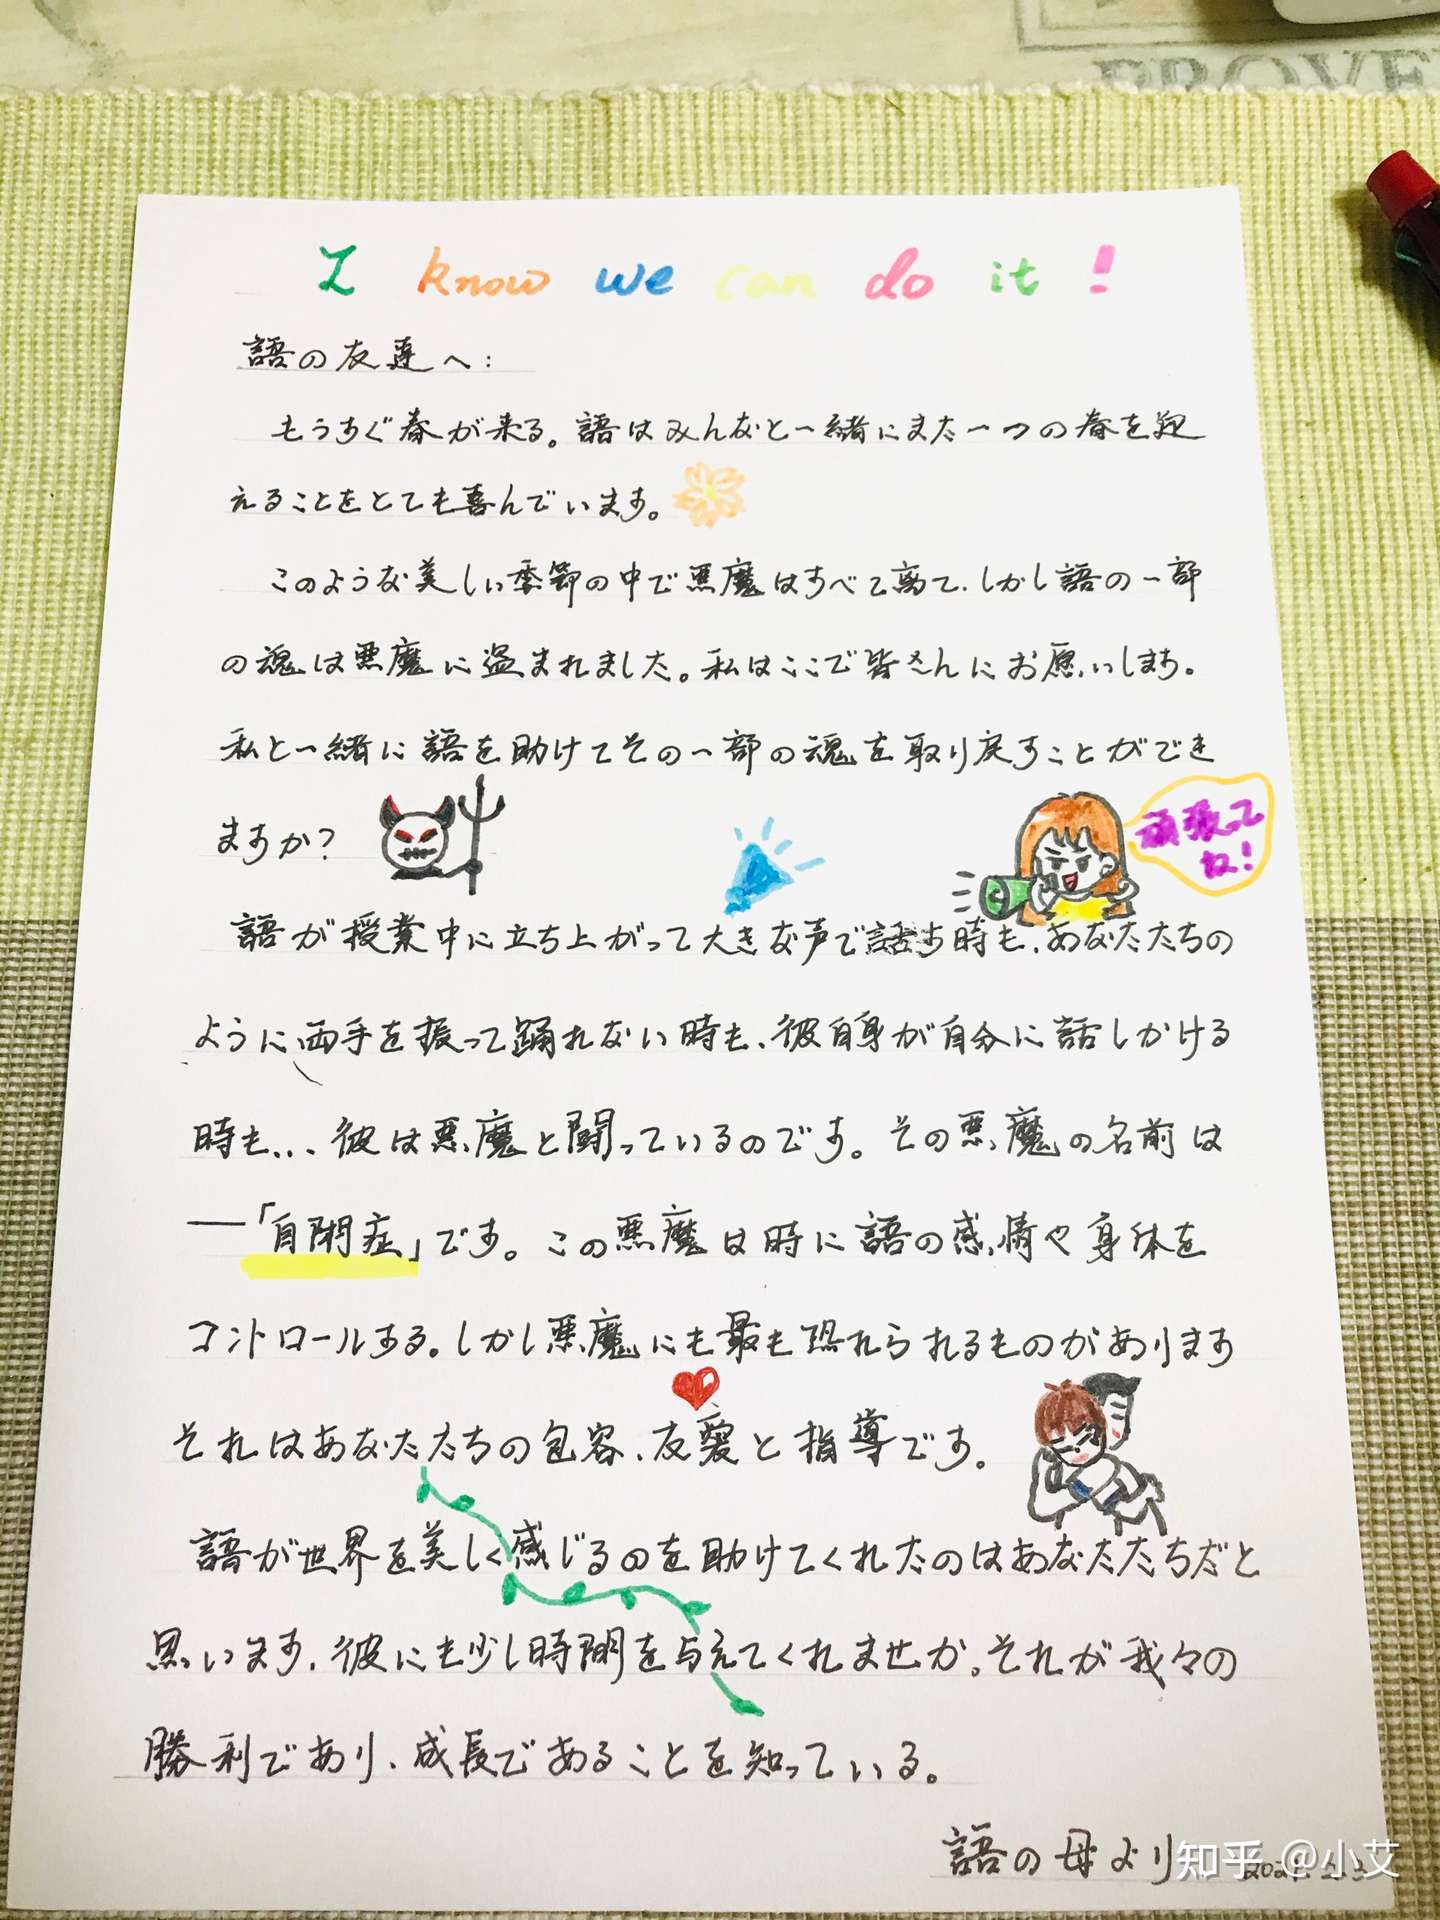 PROVE
I know we can do it!
語の友達へ:
もうすぐ春が来る。語はみんなと一緒にまた一つの春を迎
えることをとても喜んでいます。
このような美しい季節の中で悪魔はすべて离て、しかし語の一部
の魂は悪魔に盗まれました。私はここで皆さんにお願いします。
私と一緒に語を助けてその一部の魂を取り戻すことができ
ますか?
頑張って
ね!
語が授業中に立ち上がって大きな声で話す時も、あなたたちの
ように、両手を振って踊れない時も、彼自身が自分に話しかける
時も...彼は悪魔と闘っているのです。その悪魔の名前は
—「自閉症」です。この悪魔は時に語の感情や身体を
コントロールする。しかし悪魔にも最も恐れられるものがあります
それはあなたたちの包容、友愛と指導です。
語が世界を美しく感じるのを助けてくれたのはあなたたちだと
思います、彼にも少し時間を与えてくれませんか。それが我々の
勝利であり、成長であることを知っている。
語の母より
知乎 @小艾